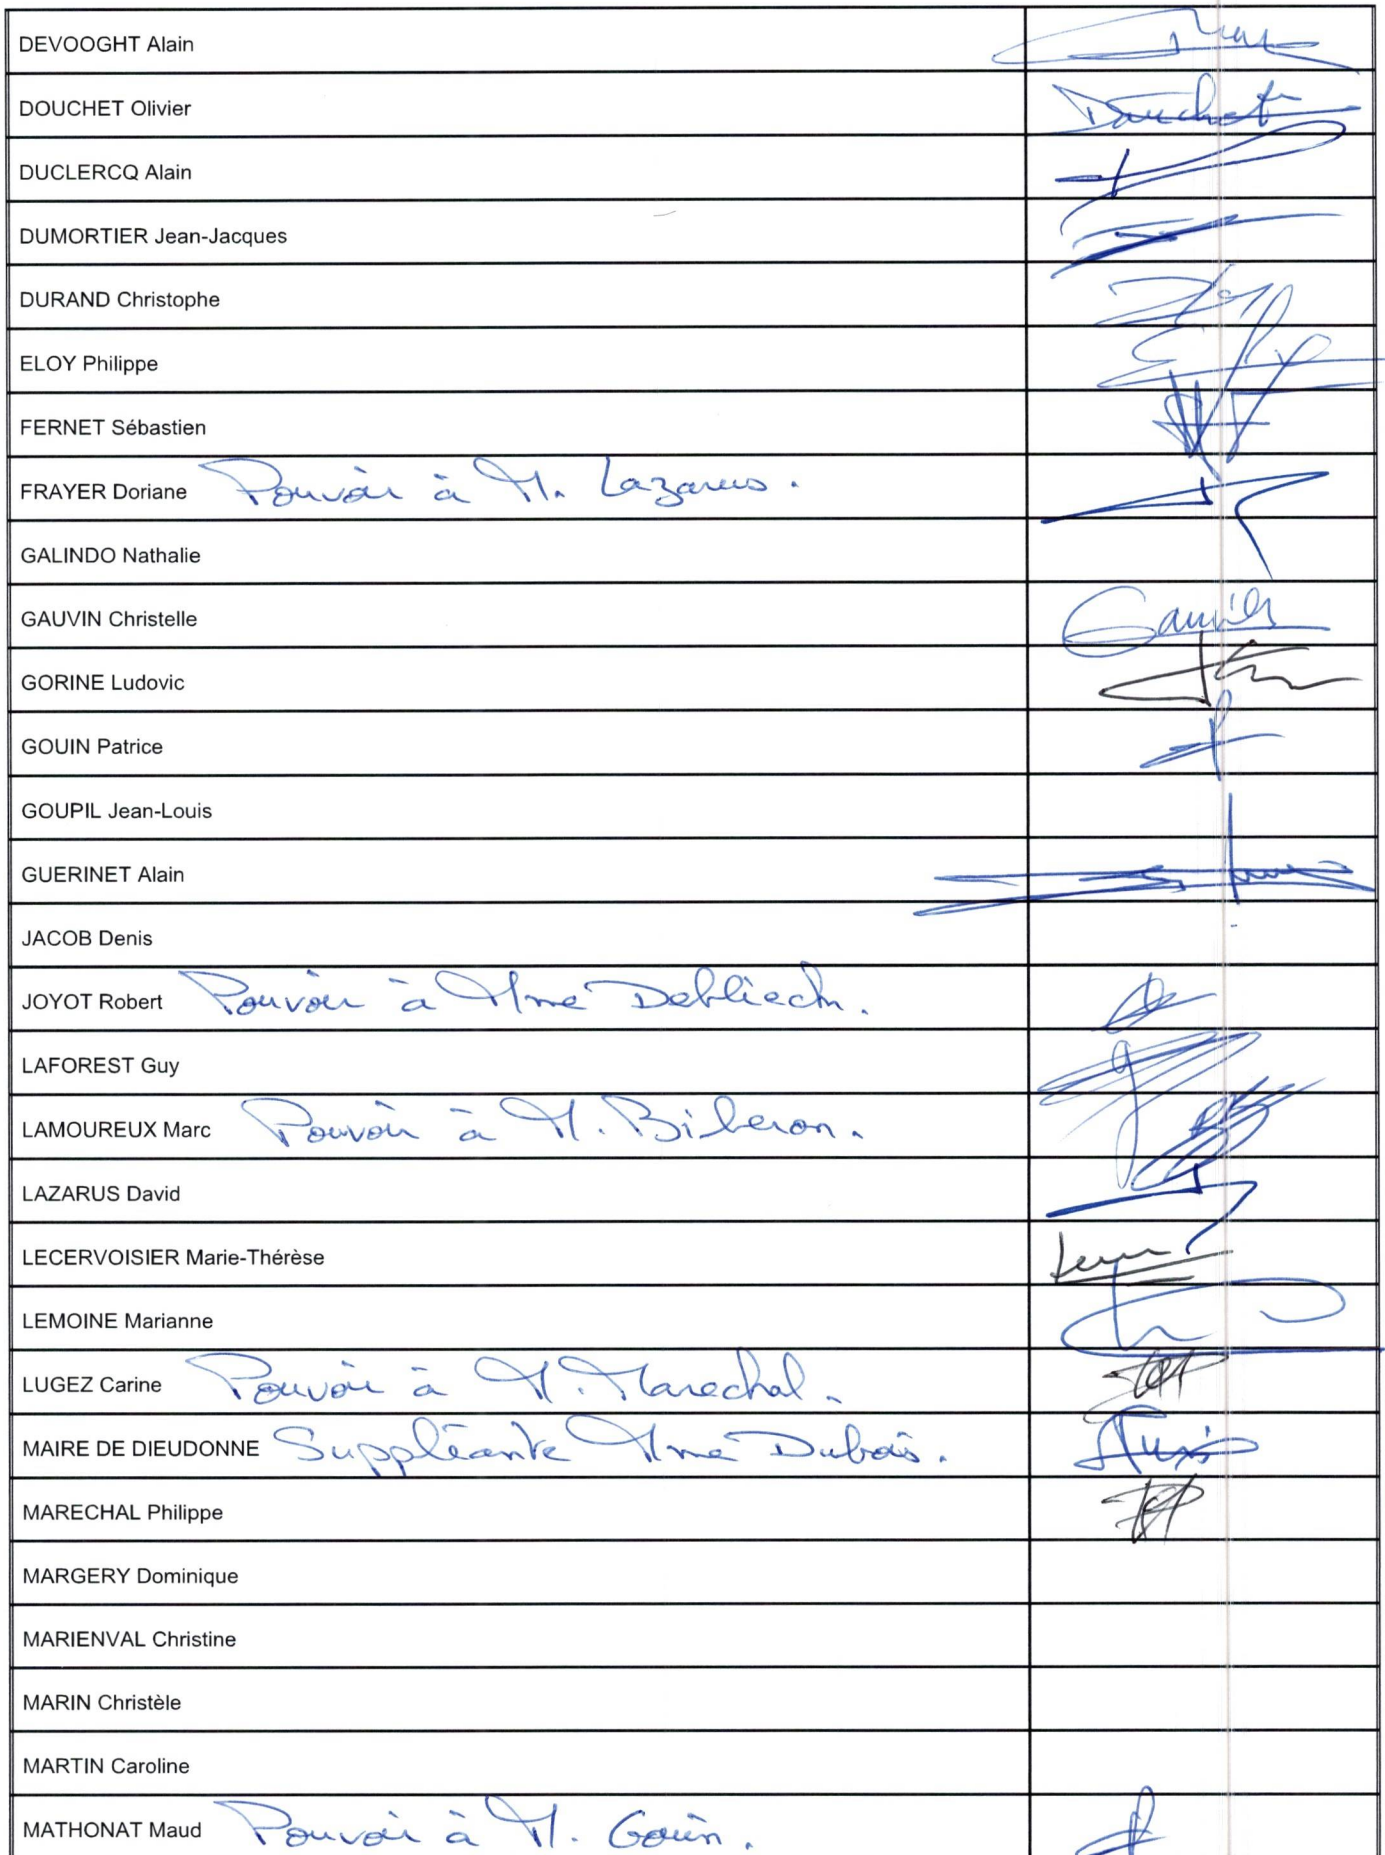 DEVOOGHT Alain
DOUCHET Olivier Douchet
DUCLERCQ Alain
DUMORTIER Jean-Jacques
DURAND Christophe
ELOY Philippe
FERNET Sébastien
FRAYER Doriane Pouvoir à M. Lazarus.
GALINDO Nathalie
GAUVIN Christelle
GORINE Ludovic
GOUIN Patrice
GOUPIL Jean-Louis
GUERINET Alain
JACOB Denis
JOYOT Robert Pouvoir à Mme Debliech.
LAFOREST Guy
LAMOUREUX Marc Pouvoir à M. Biberon.
LAZARUS David
LECERVOISIER Marie-Thérèse
LEMOINE Marianne
LUGEZ Carine Pouvoir à M. Marechal.
MAIRE DE DIEUDONNE Suppléante Mme Dubois.
MARECHAL Philippe
MARGERY Dominique
MARIENVAL Christine
MARIN Christèle
MARTIN Caroline
MATHONAT Maud Pouvoir à M. Gouin.